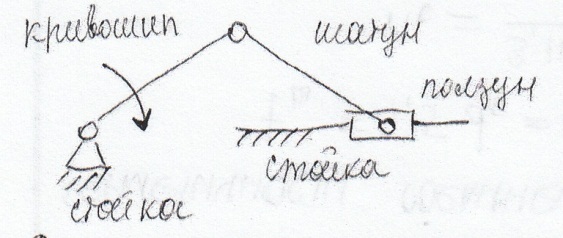 кривошип
шатун
ползун
стойка
стойка